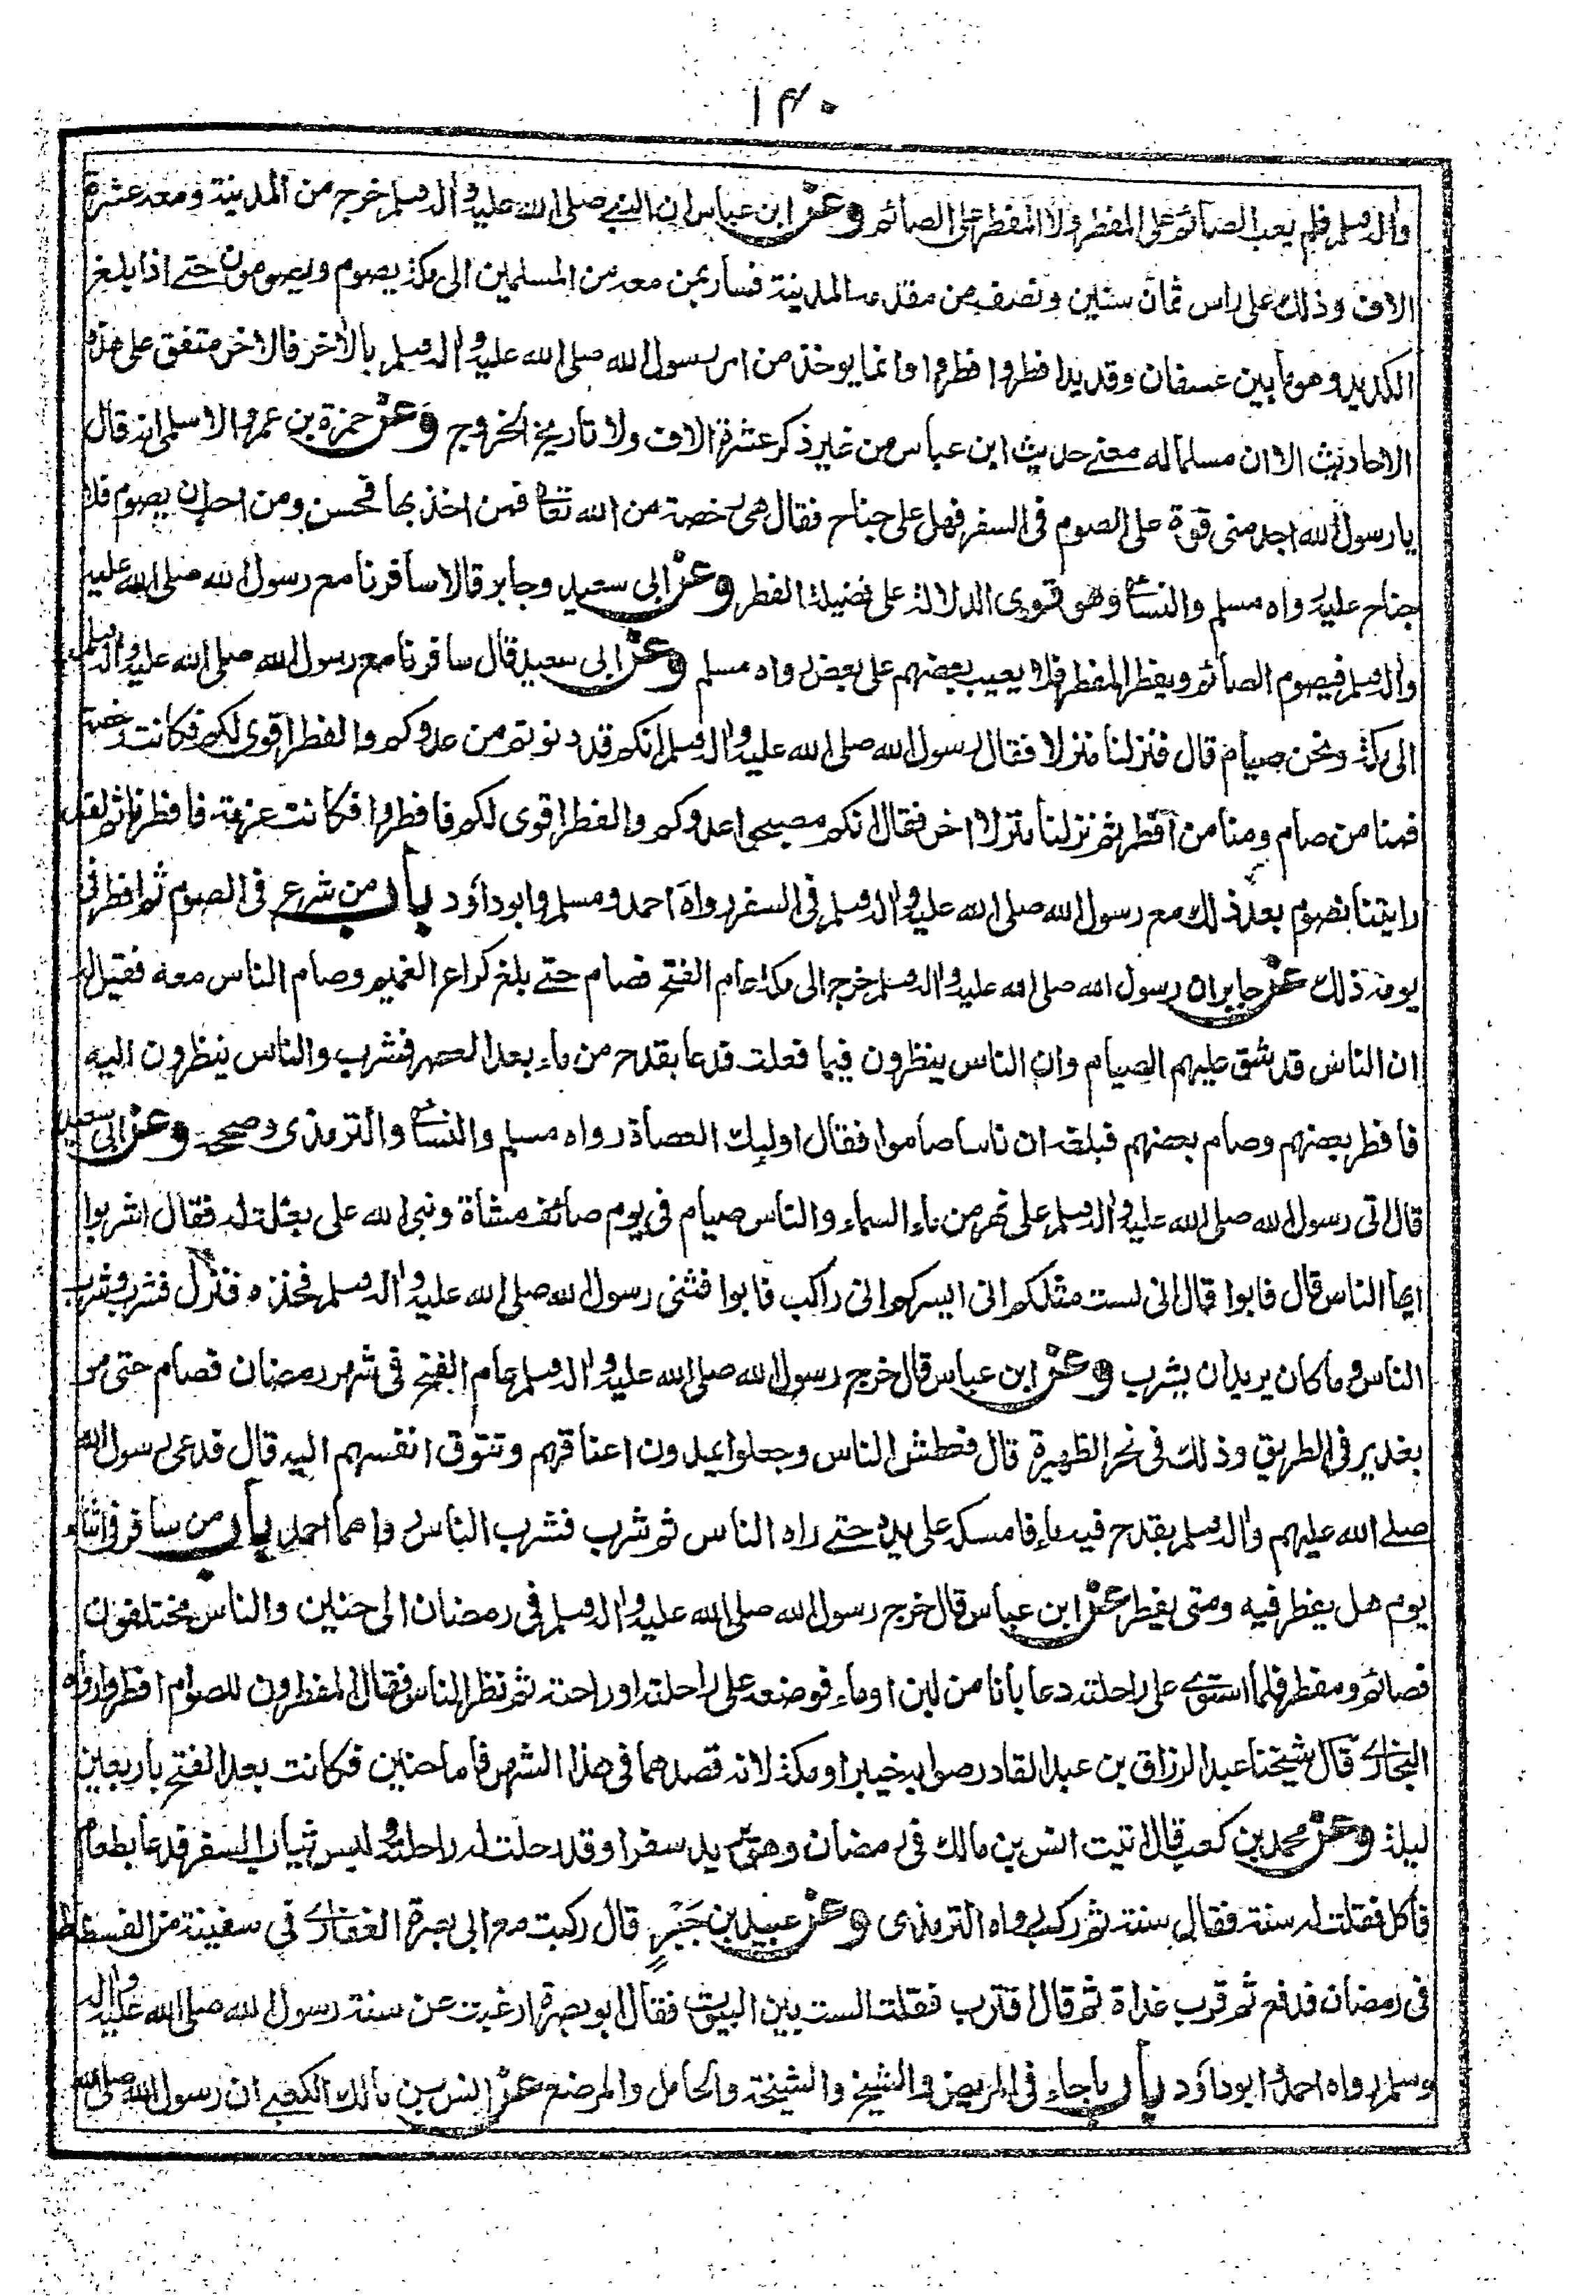 ١٤٠
واٰله وسلم فلم يعب الصائم على المفطر ولا المفطر على الصائم وعن ابن عباس ان النبي صلى الله عليه واٰله وسلم خرج من المدينة ومعه عشرة
الاف وذلك على راس ثمان سنين ونصف من مقدمه المدينة فسار بمن معه من المسلمين الى مكة يصوم ويصومون حتے اذا بلغ
الكديد وهو ما بين عسفان وقديد افطر وافطروا وانما يوخذ من امر رسول الله صلى الله عليه واٰله وسلم بالاٰخر فالاٰخر متفق على هذه
الاحاديث الا ان مسلما له معنے حديث ابن عباس من غير ذكر عشرة الاف ولا تاريخ الخروج وعن حمزة بن عمرو الاسلمى انه قال
يا رسول الله اجد منى قوة على الصوم فى السفر فهل على جناح فقال هى رخصة من الله تعالى فمن اخذ بها فحسن ومن احب ان يصوم فلا
جناح عليه رواه مسلم والنسائ وهو قوى الدلالة على فضيلة الفطر وعن ابى سعيد وجابر قالا سافرنا مع رسول الله صلى الله عليه
واٰله وسلم فيصوم الصائم ويفطر المفطر فلا يعيب بعضهم على بعض رواه مسلم وعن ابى سعيد قال سافرنا مع رسول الله صلى الله عليه واٰله وسلم
الى مكة ونحن صيام قال فنزلنا منزلا فقال رسول الله صلى الله عليه واٰله وسلم انكم قد دنوتم من عدوكم والفطر اقوى لكم فكانت رخصة
فمنا من صام ومنا من افطر ثم نزلنا منزلا اخر فقال انكم مصبحى عدوكم والفطر اقوى لكم فافطروا فكانت عزمة فافطرنا ثم لقد
رايتنا نصوم بعد ذلك مع رسول الله صلى الله عليه واٰله وسلم فى السفر رواه احمد ومسلم وابوداؤد باب من شرع فى الصوم ثم افطر فى
يومه ذلك عن جابر ان رسول الله صلى الله عليه واٰله وسلم خرج الى مكة عام الفتح فصام حتے بلغ كراع الغميم وصام الناس معه فقيل له
ان الناس قد شق عليهم الصيام وان الناس ينظرون فيما فعلت فدعا بقدح من ماء بعد العصر فشرب والناس ينظرون اليه
فافطر بعضهم وصام بعضهم فبلغه ان ناسا صاموا فقال اوليك العصاة رواه مسلم والنسائ والترمذى وصححه وعن ابى سعيد
قال اتى رسول الله صلى الله عليه واٰله وسلم على نهر من ماء السماء والناس صيام فى يوم صائف مشاة ونبى الله على بغلة له فقال اشربوا
ايها الناس قال فابوا قال انى لست مثلكم انى ايسركم انى راكب فابوا فثنى رسول الله صلى الله عليه واٰله وسلم فخذه فنزل فشرب وشرب
الناس وما كان يريد ان يشرب وعن ابن عباس قال خرج رسول الله صلى الله عليه واٰله وسلم عام الفتح فى شهر رمضان فصام حتى مر
بغدير فى الطريق وذلك فى نحر الظهيرة قال فعطش الناس وجعلوا يمدون اعناقهم وتتوق انفسهم اليه قال فدعى رسول الله
صلے الله عليهم واٰله وسلم بقدح فيه ماء فامسكه على يده حتے راه الناس ثم شرب فشرب الناس رواهما احمد باب من سافر فى اثناء
يوم هل يفطر فيه ومتى يفطر عن ابن عباس قال خرج رسول الله صلى الله عليه واٰله وسلم فى رمضان الى حنين والناس مختلفون
فصائم ومفطر فلما استوے على راحلته دعا بانا من لبن او ماء فوضعه على راحلته او راحته ثم نظر الناس فقال المفطرون للصوام افطروا رواه
البخارے قال شيخنا عبد الرزاق بن عبد القادر صوابه خيبر او مكة لانه قصدهما فى هذا الشهر فاما حنين فكانت بعد الفتح باربعين
ليلة وعن محمد بن كعب قال اتيت انس بن مالك فى رمضان وهو يريد سفرا وقد رحلت له راحلته ولبس ثياب السفر فدعا بطعام
فاكل فقلت له سنة فقال سنة ثم ركب رواه الترمذى وعن عبيد بن جَبْرٍ قال ركبت مع ابى بصرة الغفارے فى سفينة من الفسطاط
فى رمضان فدفع ثم قرب غداة ثم قال اقترب فقلت الست بين البيوت فقال ابو بصرة ارغبت عن سنة رسول الله صلى الله عليه واٰله
وسلم رواه احمد وابوداؤد باب ماجاء فى المريض والشيخ والشيخة والحامل والمرضع عن انس بن مالك الكعبے ان رسول الله صلى الله